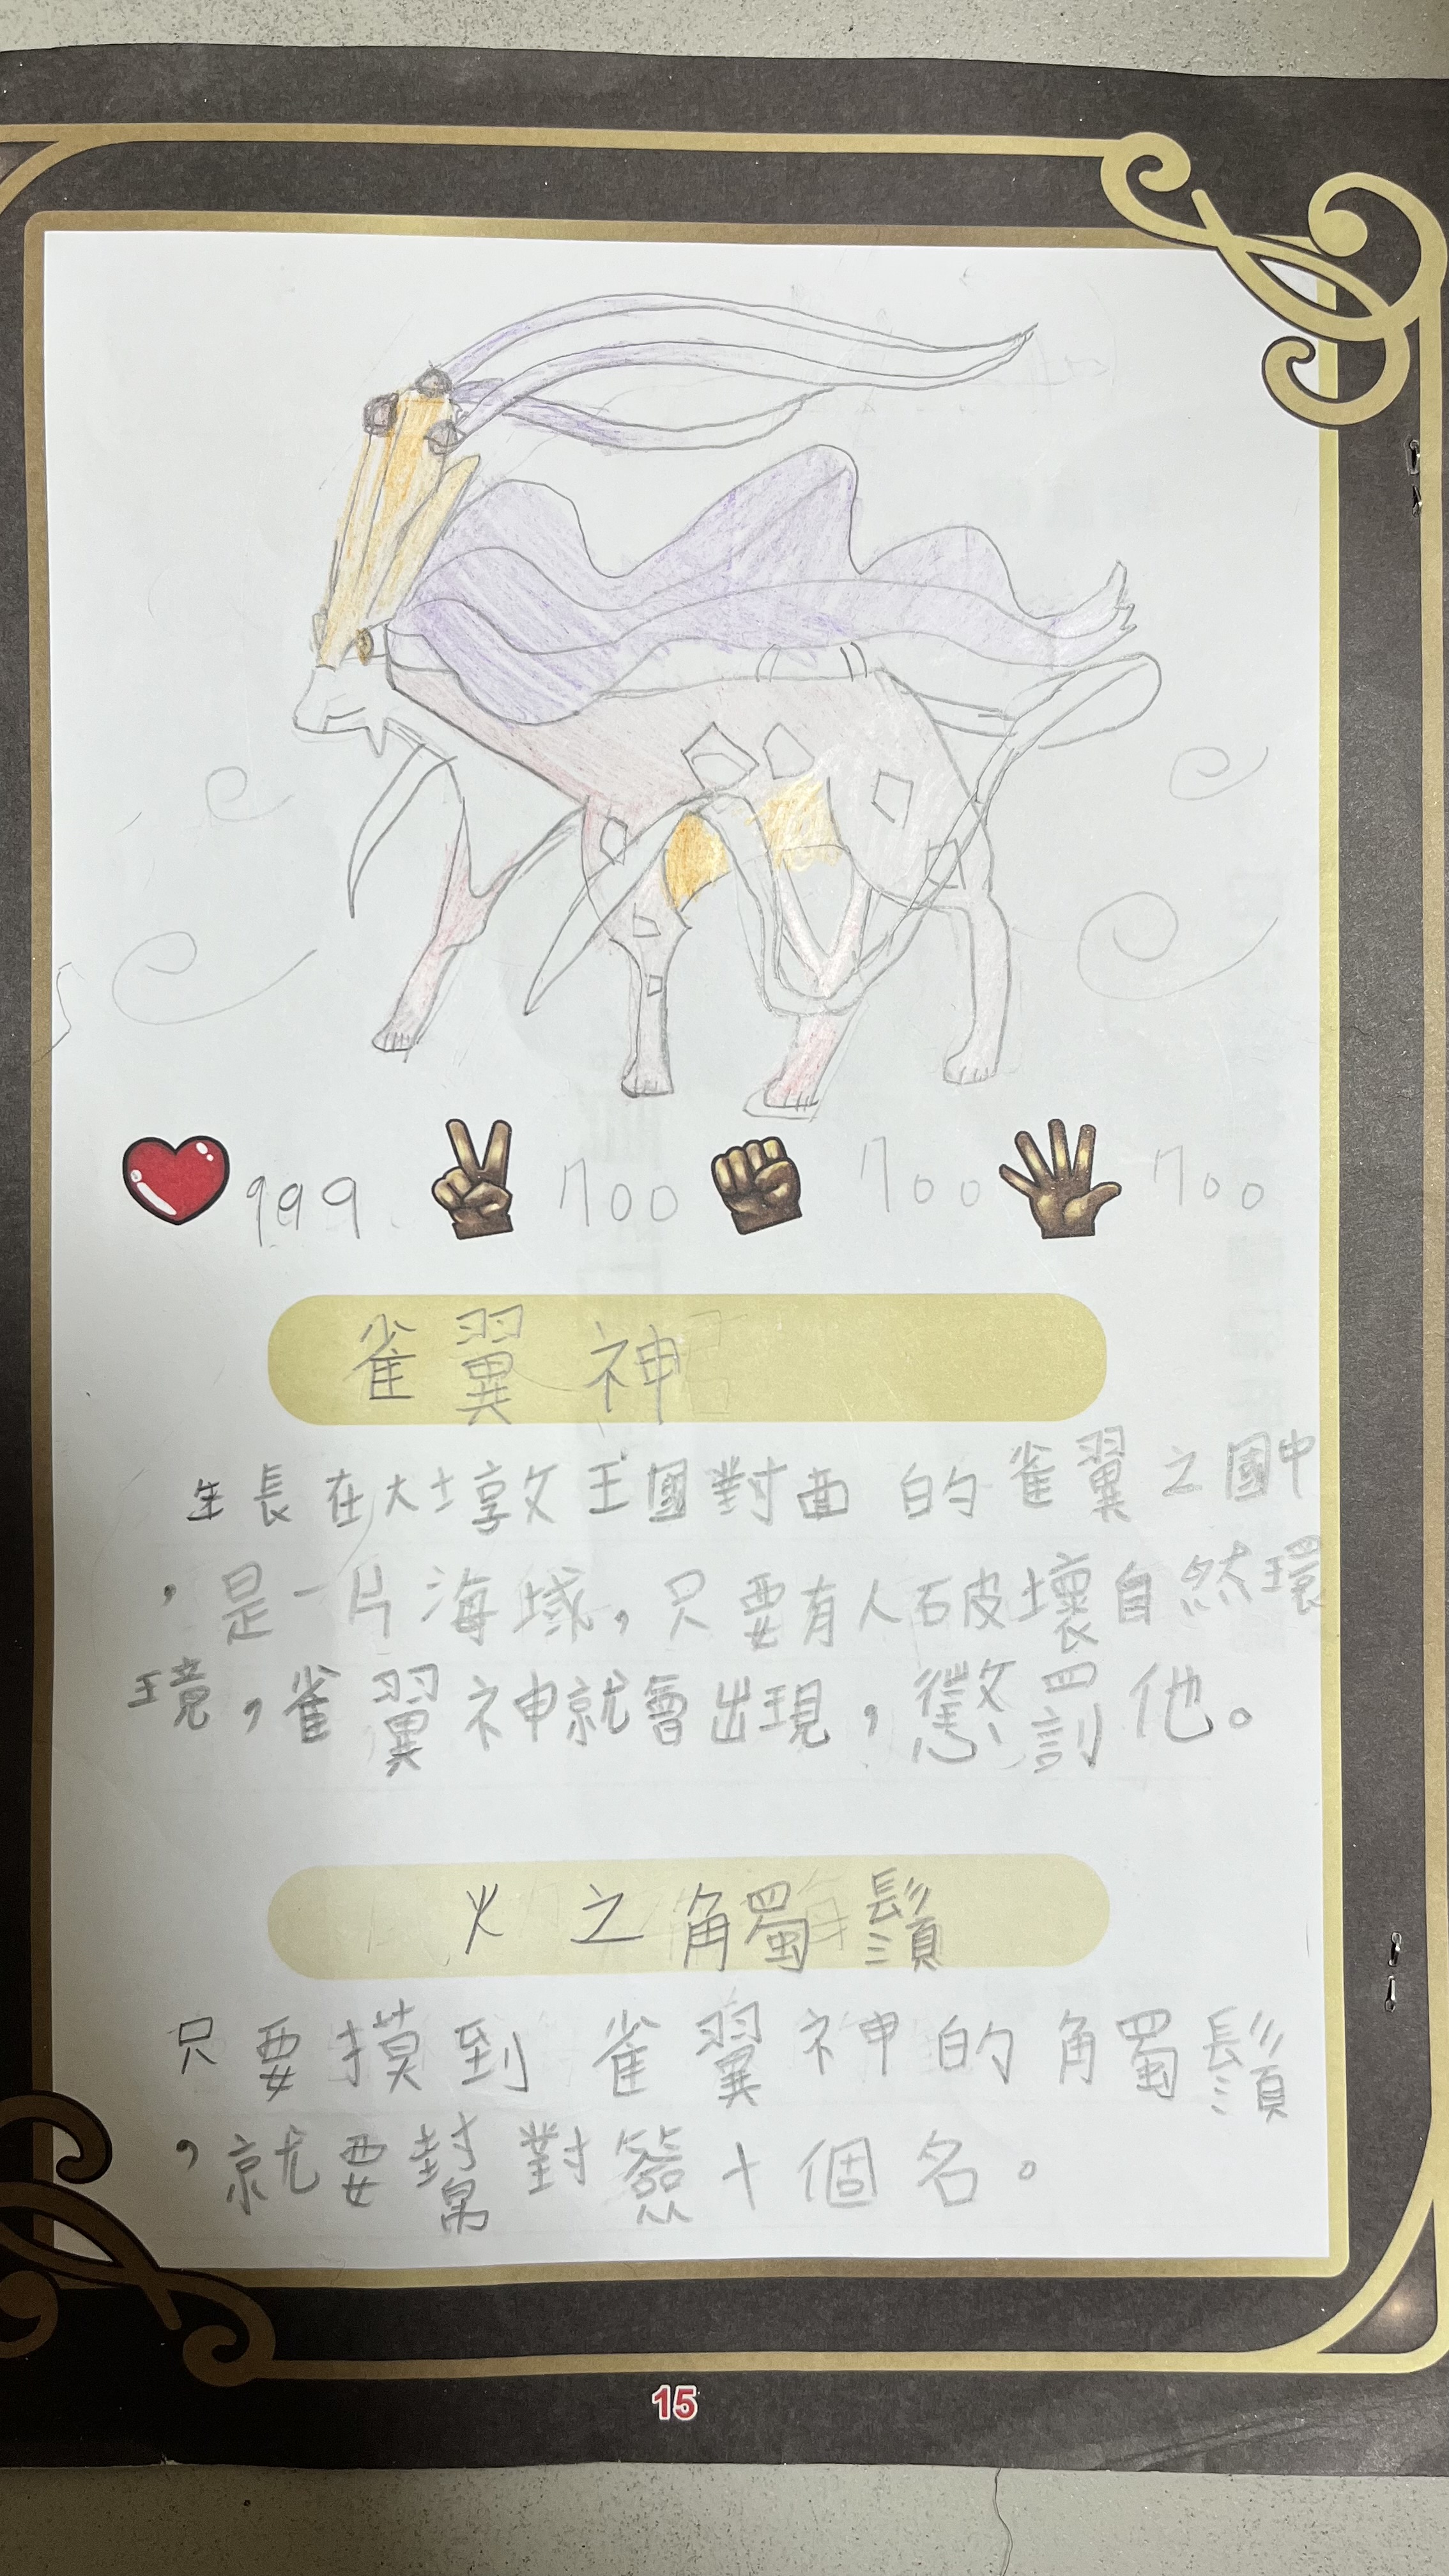 999 700 700 700
雀翼神
生長在大墩王國對面的雀翼之國中
，是一片海域，只要有人破壞自然環
境，雀翼神就會出現，懲罰他。
火之觸鬚
只要摸到雀翼神的觸鬚
，就要幫對簽十個名。
15